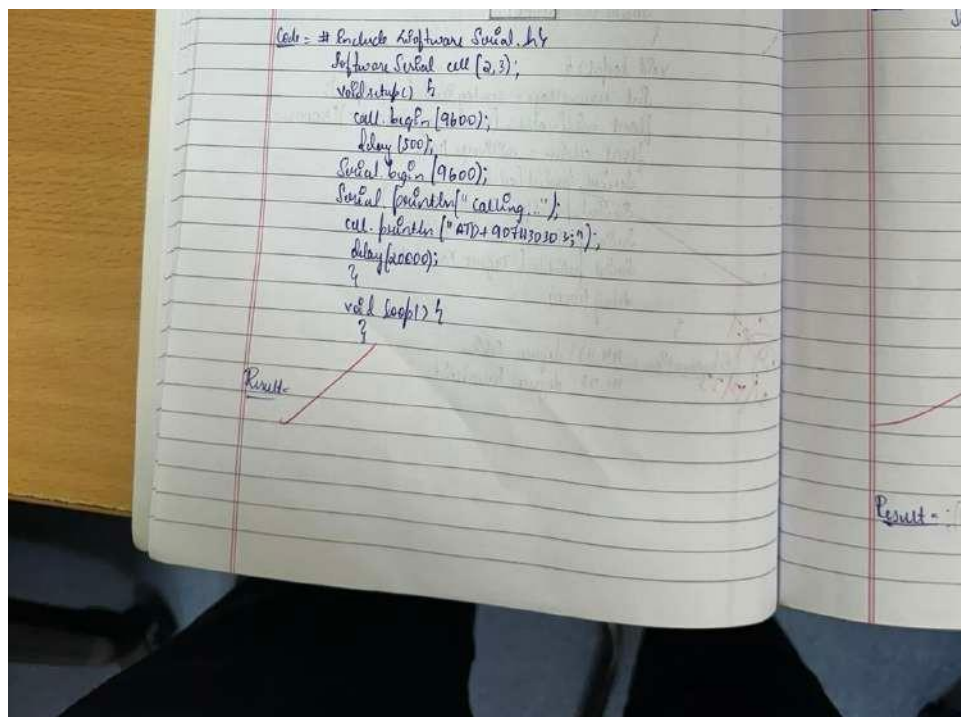 Code = # Include <Software Serial.h>
Software Serial cell (2,3);
void setup() {
cell.begin (9600);
delay (500);
Serial.begin (9600);
Serial.println ("calling...");
cell.println ("ATD+
delay (20000);
}
void loop() {
}
Result=
Result =